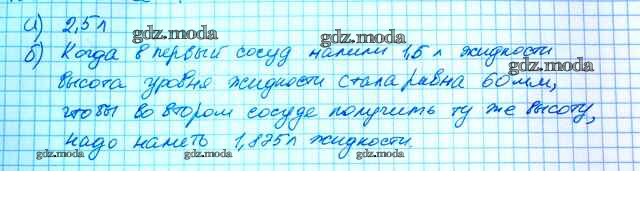 а) 2,5 л
gdz.moda gdz.moda
б) Когда в первый сосуд налили 1,5 л жидкости
gdz.moda gdz.moda
высота уровня жидкости стала равна 60 мм,
gdz.moda gdz.moda
чтобы во втором сосуде получить ту же высоту,
gdz.moda
надо налить 1,875 л жидкости.
gdz.moda gdz.moda gdz.moda